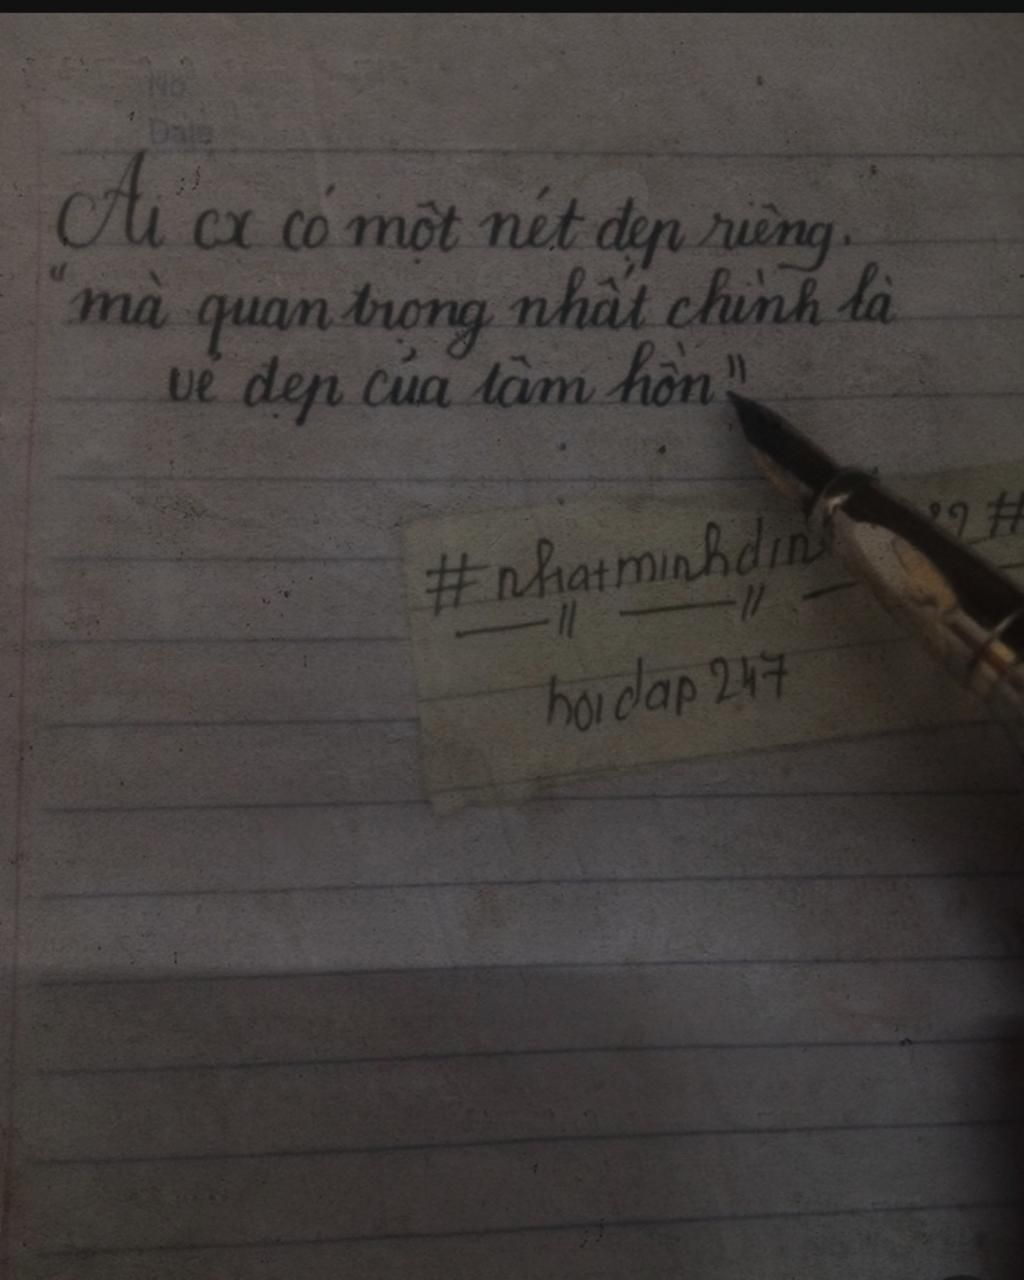 No
Date
Ai cx có một nét đẹp riêng.
"mà quan trọng nhất chính là
vẻ đẹp của tâm hồn"
#
hoidap 247